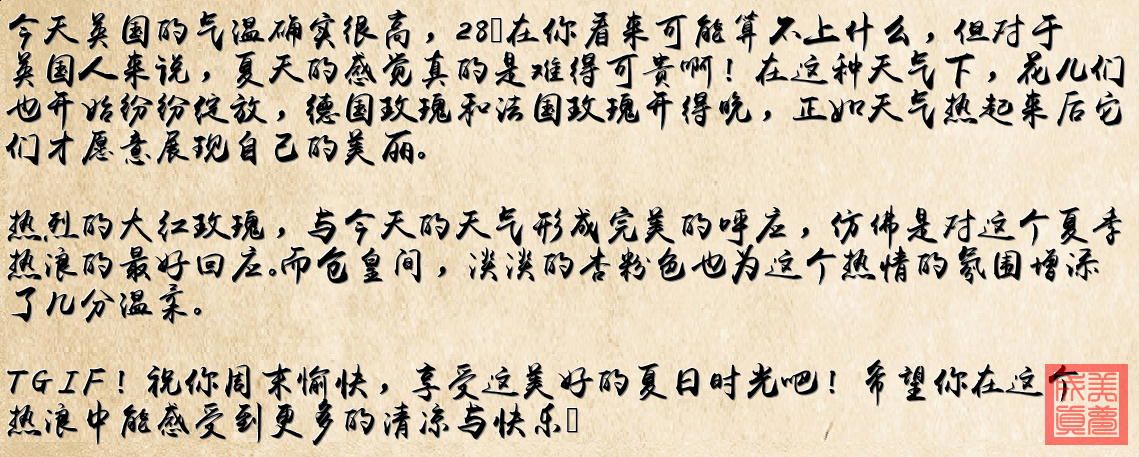 今天英国的气温确实很高，28▯在你看来可能算不上什么，但对于
英国人来说，夏天的感觉真的是难得可贵啊！在这种天气下，花儿们
也开始纷纷绽放，德国玫瑰和法国玫瑰开得晚，正如天气热起来后它
们才愿意展现自己的美丽。
热烈的大红玫瑰，与今天的天气形成完美的呼应，仿佛是对这个夏季
热浪的最好回应。而仓皇间，淡淡的杏粉色也为这个热情的氛围增添
了几分温柔。
TGIF！祝你周末愉快，享受这美好的夏日时光吧！希望你在这个
热浪中能感受到更多的清凉与快乐▯
美梦成真